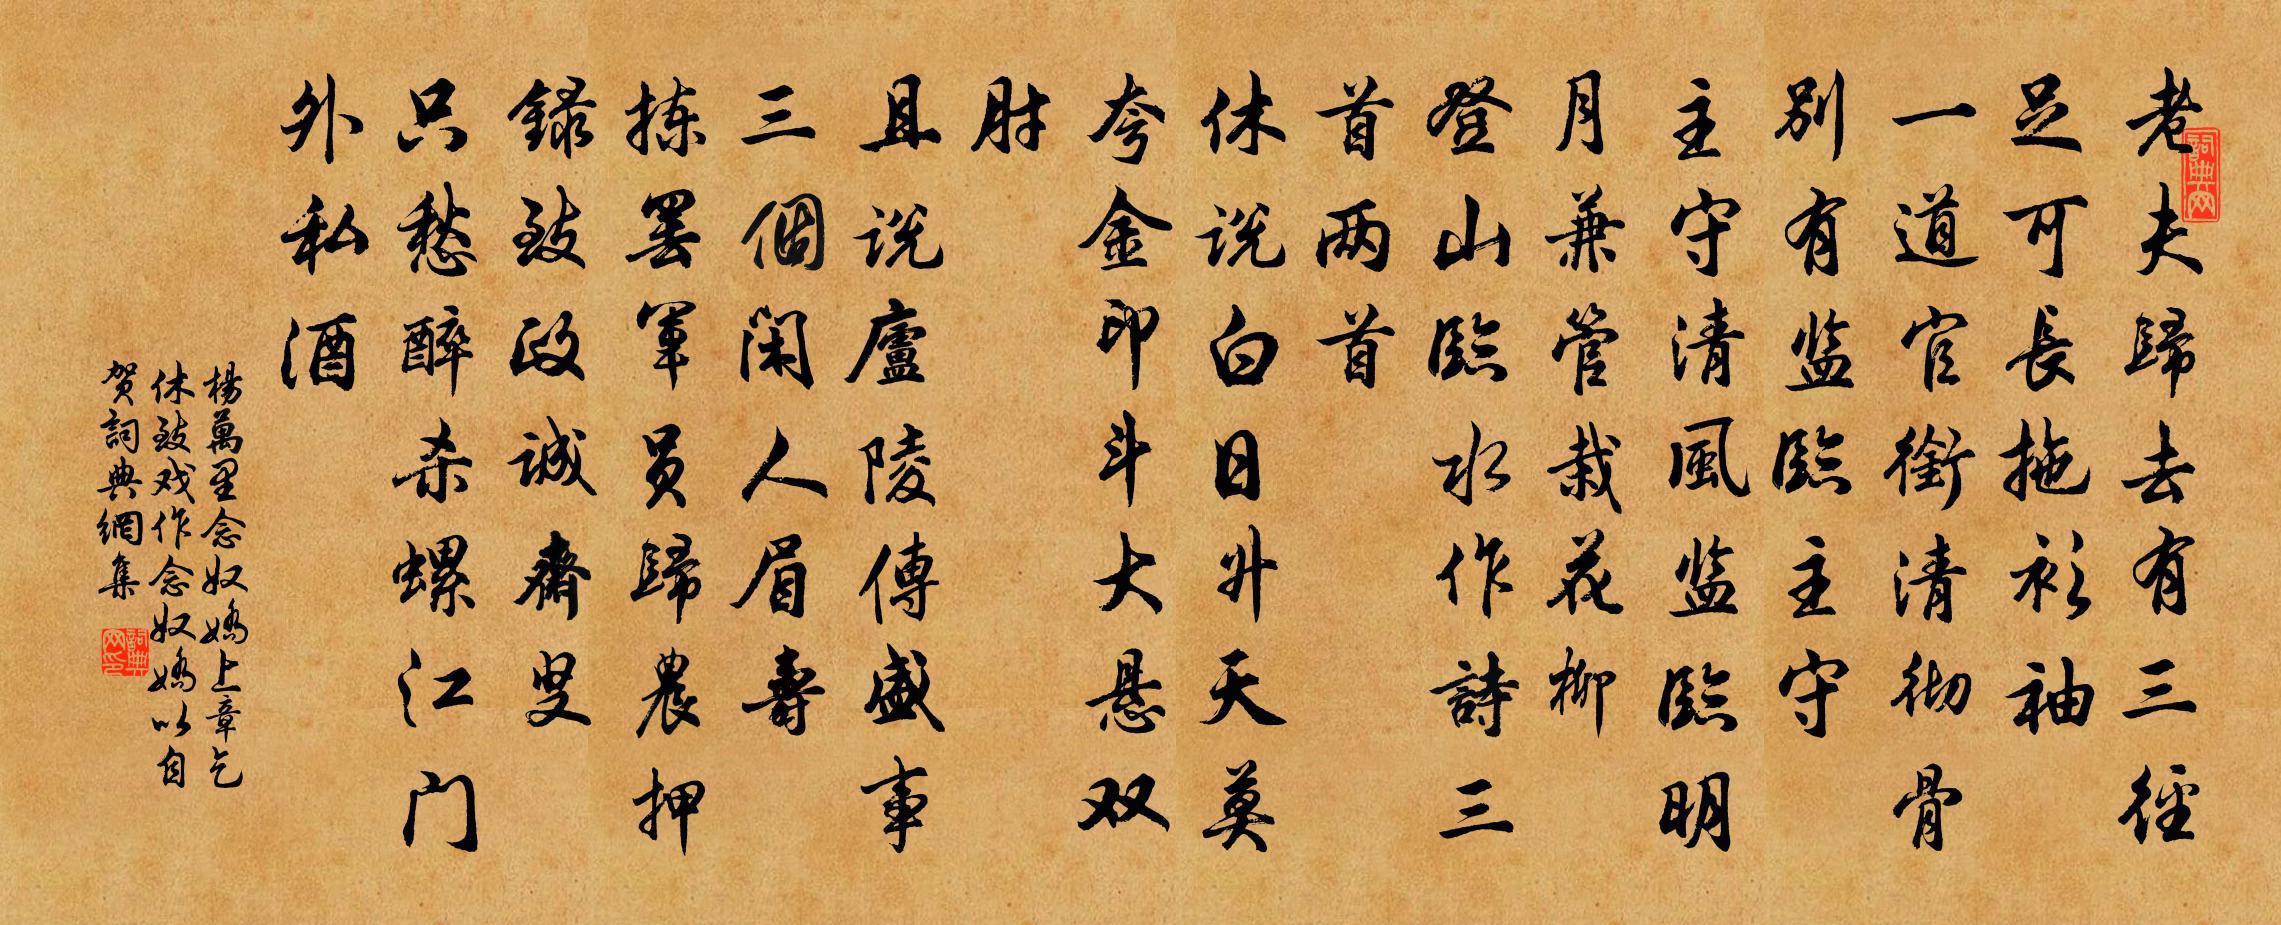 老夫歸去有三徑
足可長拖衫袖
一道官銜清彻骨
別有监臨主守
主守清風监臨明
月兼管栽花柳
登山臨水作詩三
首两首
休说白日升天莫
夸金印斗大悬双
肘
且说廬陵傳盛事
三個閑人眉壽
拣罢軍员歸農押
錄致政誠齋叟
只愁醉杀螺江门
外私酒
楊萬里念奴嬌上章乞
休致戏作念奴嬌以自
贺詞典網集
詞典网
詞典网印